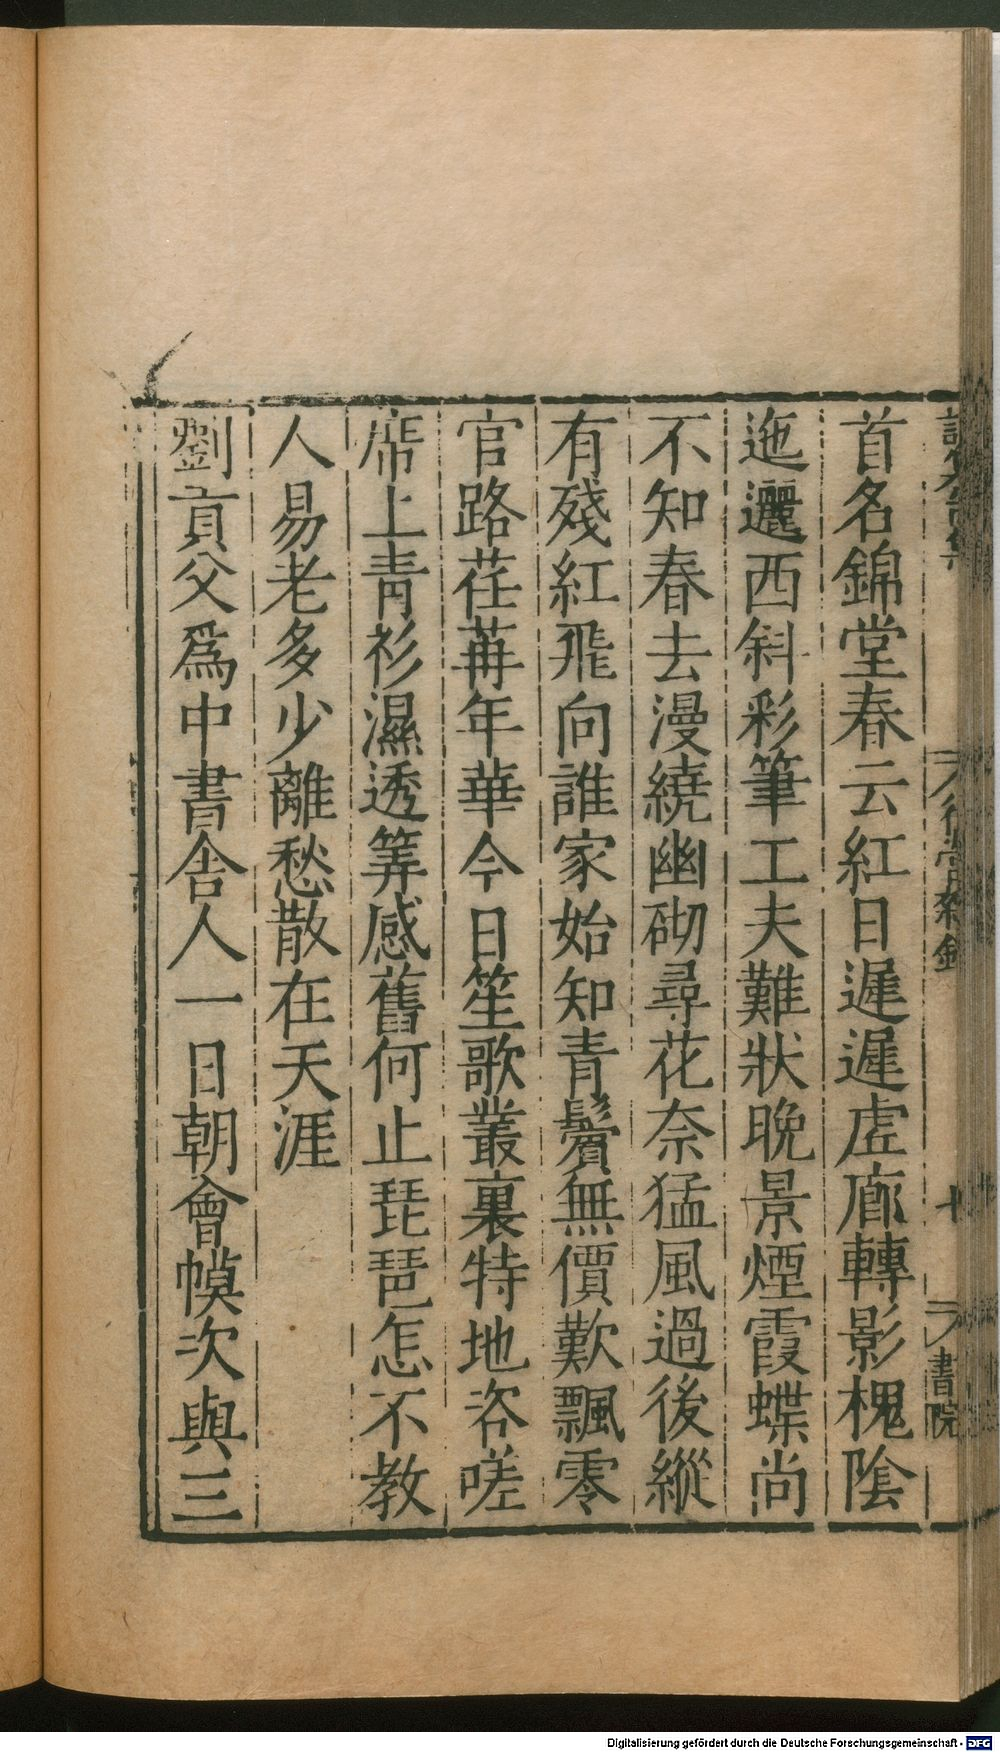 首名錦堂春云紅日遲遲虛廊轉影槐陰
迤邐西斜彩筆工夫難狀晚景煙霞蝶尚
不知春去漫繞幽砌尋花奈猛風過後縱
有殘紅飛向誰家始知青鬢無價歎飄零
官路荏苒年華今日笙歌叢裏特地咨嗟
席上青衫濕透筭感舊何止琵琶怎不教
人易老多少離愁散在天涯
劉貢父爲中書舍人一日朝會幙次與三
十
書院
Digitalisierung gefördert durch die Deutsche Forschungsgemeinschaft - DFG